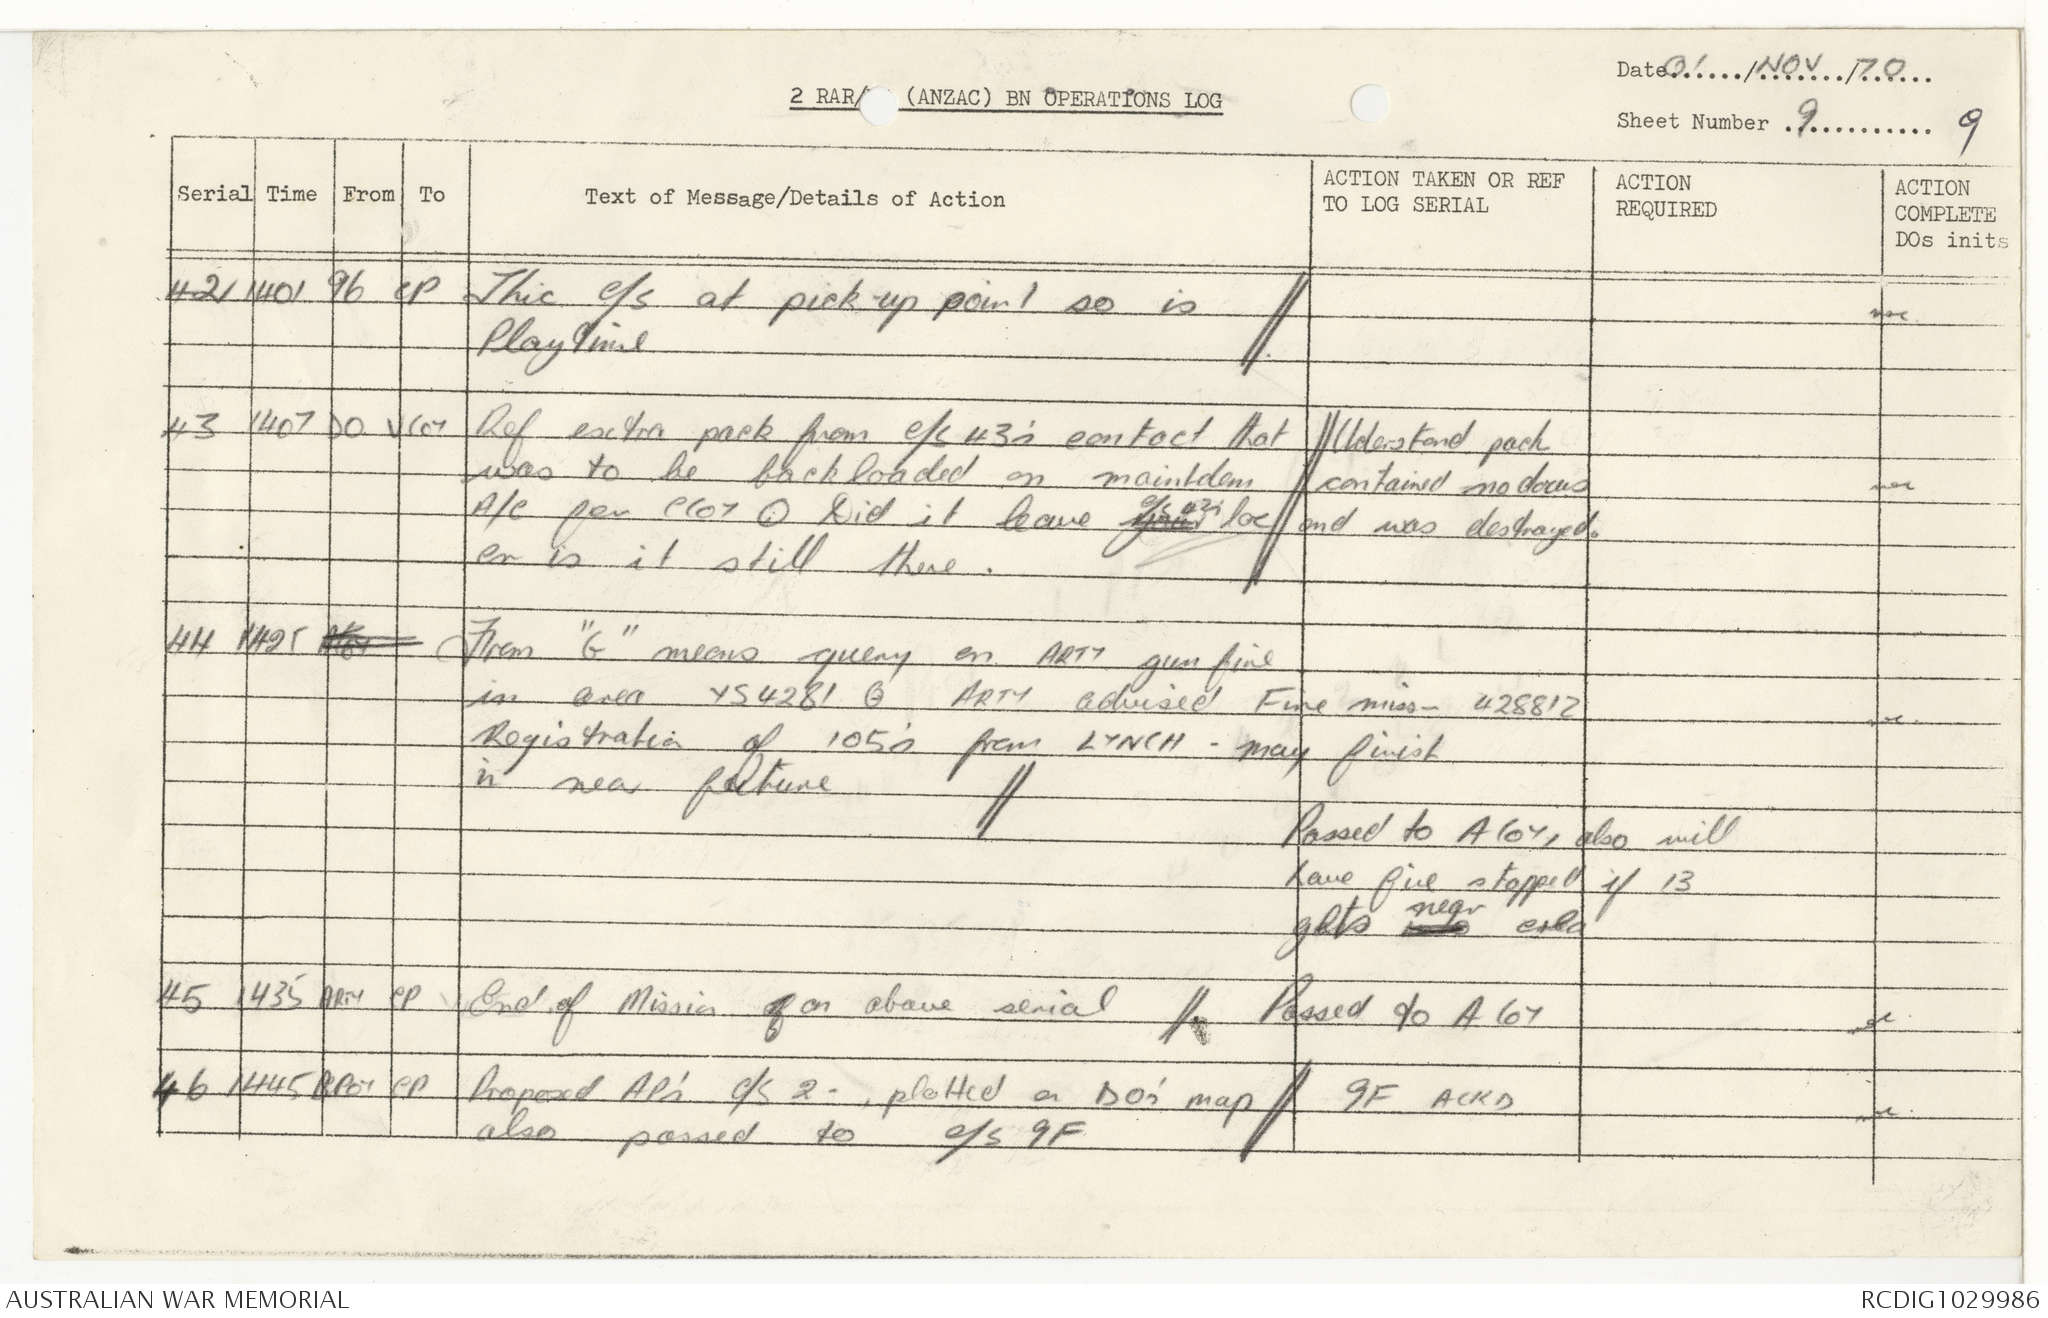 Date 01/NOV/70
2 RAR/ (ANZAC) BN OPERATIONS LOG
Sheet Number 9 9
Serial Time From To Text of Message/Details of Action ACTION TAKEN OR REF TO LOG SERIAL ACTION REQUIRED ACTION COMPLETE DOs inits
42 1401 96 CP This c/s at pick-up point so is
Playtime //
43 1407 DO V Coy Ref extra pack from c/s 43's contact that // Understand pack
was to be backloaded on maintdem contained no docus
A/C for C Coy Did it leave c/s 43's loc and was destroyed.
or is it still there.
44 1425 From "G" means query on ARTY gun fire
in area YS4281 ARTY advised Fire miss- 428812
Registration of 105's from LYNCH - may finish
in near future //
Passed to A Coy, also will
have fire stopped if 13
gets near
45 1435 ARTY CP End of Mission on above serial // Passed to A Coy
46 1445 CP Proposed AP's c/s 2-, plotted on DO's map // 9F ACKD
also passed to c/s 9F
AUSTRALIAN WAR MEMORIAL RCDIG1029986